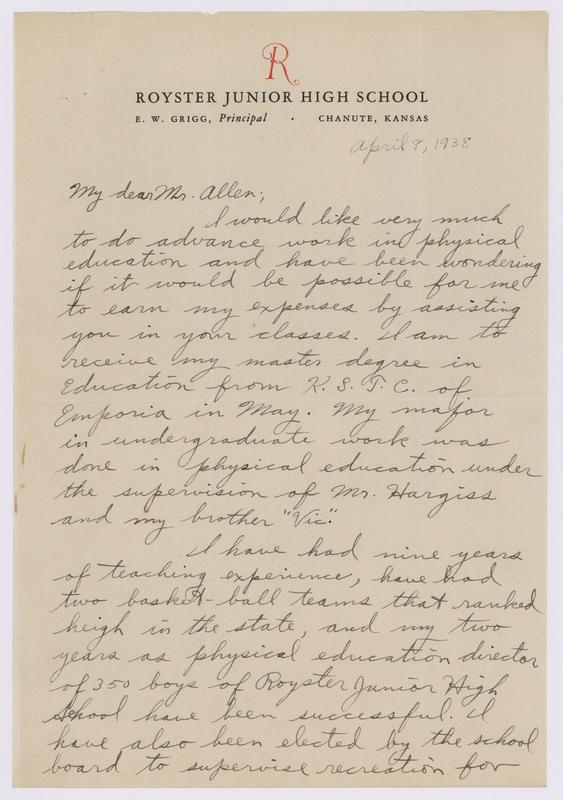 R
ROYSTER JUNIOR HIGH SCHOOL
E. W. GRIGG, Principal · CHANUTE, KANSAS
April 8, 1938
My dear Mr. Allen;
I would like very much
to do advance work in physical
education and have been wondering
if it would be possible for me
to earn my expenses by assisting
you in your classes. I am to
receive my master degree in
Education from K. S. T. C. of
Emporia in May. My major
in undergraduate work was
done in physical education under
the supervision of Mr. Hargiss
and my brother "Vic".
I have had nine years
of teaching experience, have had
two basket-ball teams that ranked
heigh in the state, and my two
years as physical education director
of 350 boys of Royster Junior High
School have been successful. I
have also been elected by the school
board to supervise recreation for